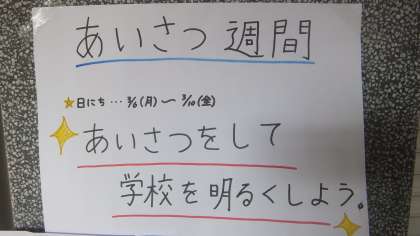 あいさつ週間
★日にち…3/6(月)〜3/10(金)
あいさつをして
学校を明るくしよう。